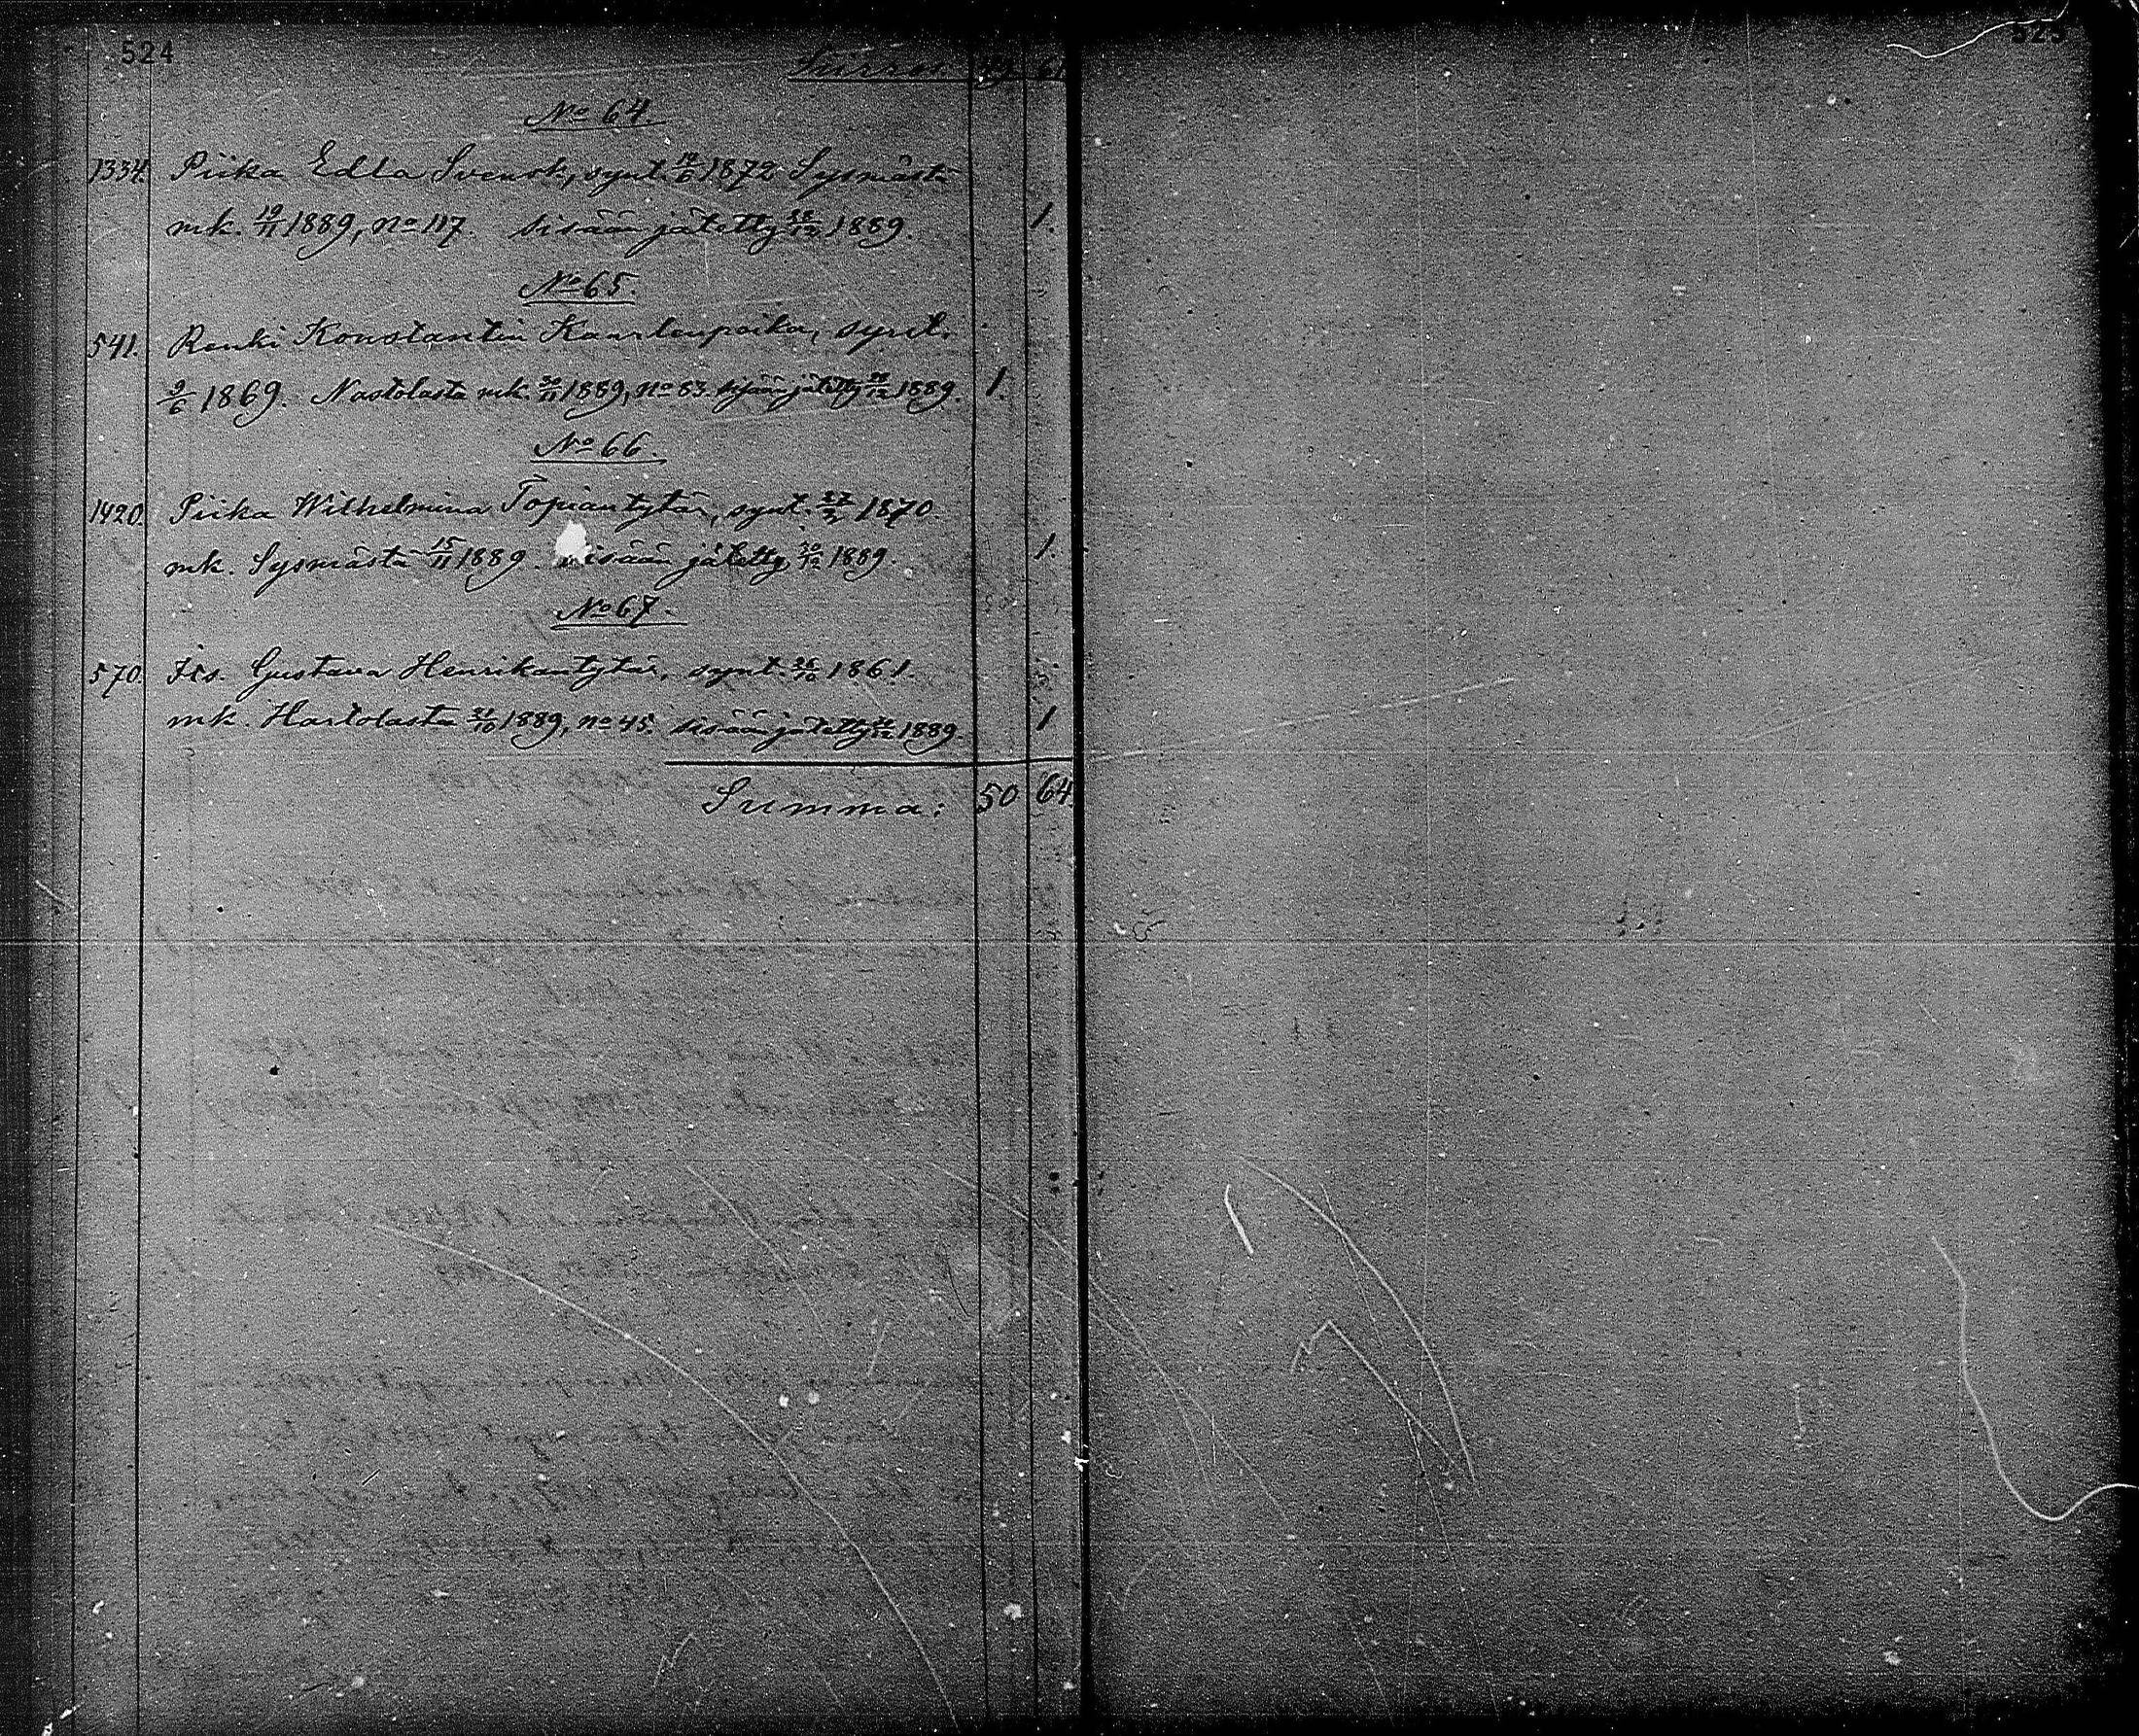 524
525
49 61
No 64.
1334. Piika Edla Svensk, synt. 1872 Sysmästä
mk. 19/11 1889, no 117. sisään jätetty 1889. 1.
No 65.
541. Renki Konstantin Kaarlenpoika, synt.
9/6 1869. Nastolasta mk. 30/11 1889, no 83. sisään jätetty 1889. 1.
No 66.
1420. Piika Wilhelmina Topiantytär, synt. 1870
mk. Sysmästä 15/11 1889. sisään jätetty 1889. 1.
No 67.
570. Its. Gustava Henrikantytär, synt. 1861.
mk. Hartolasta 31/10 1889, no 45. sisään jätetty 1889. 1
Summa: 50 64.